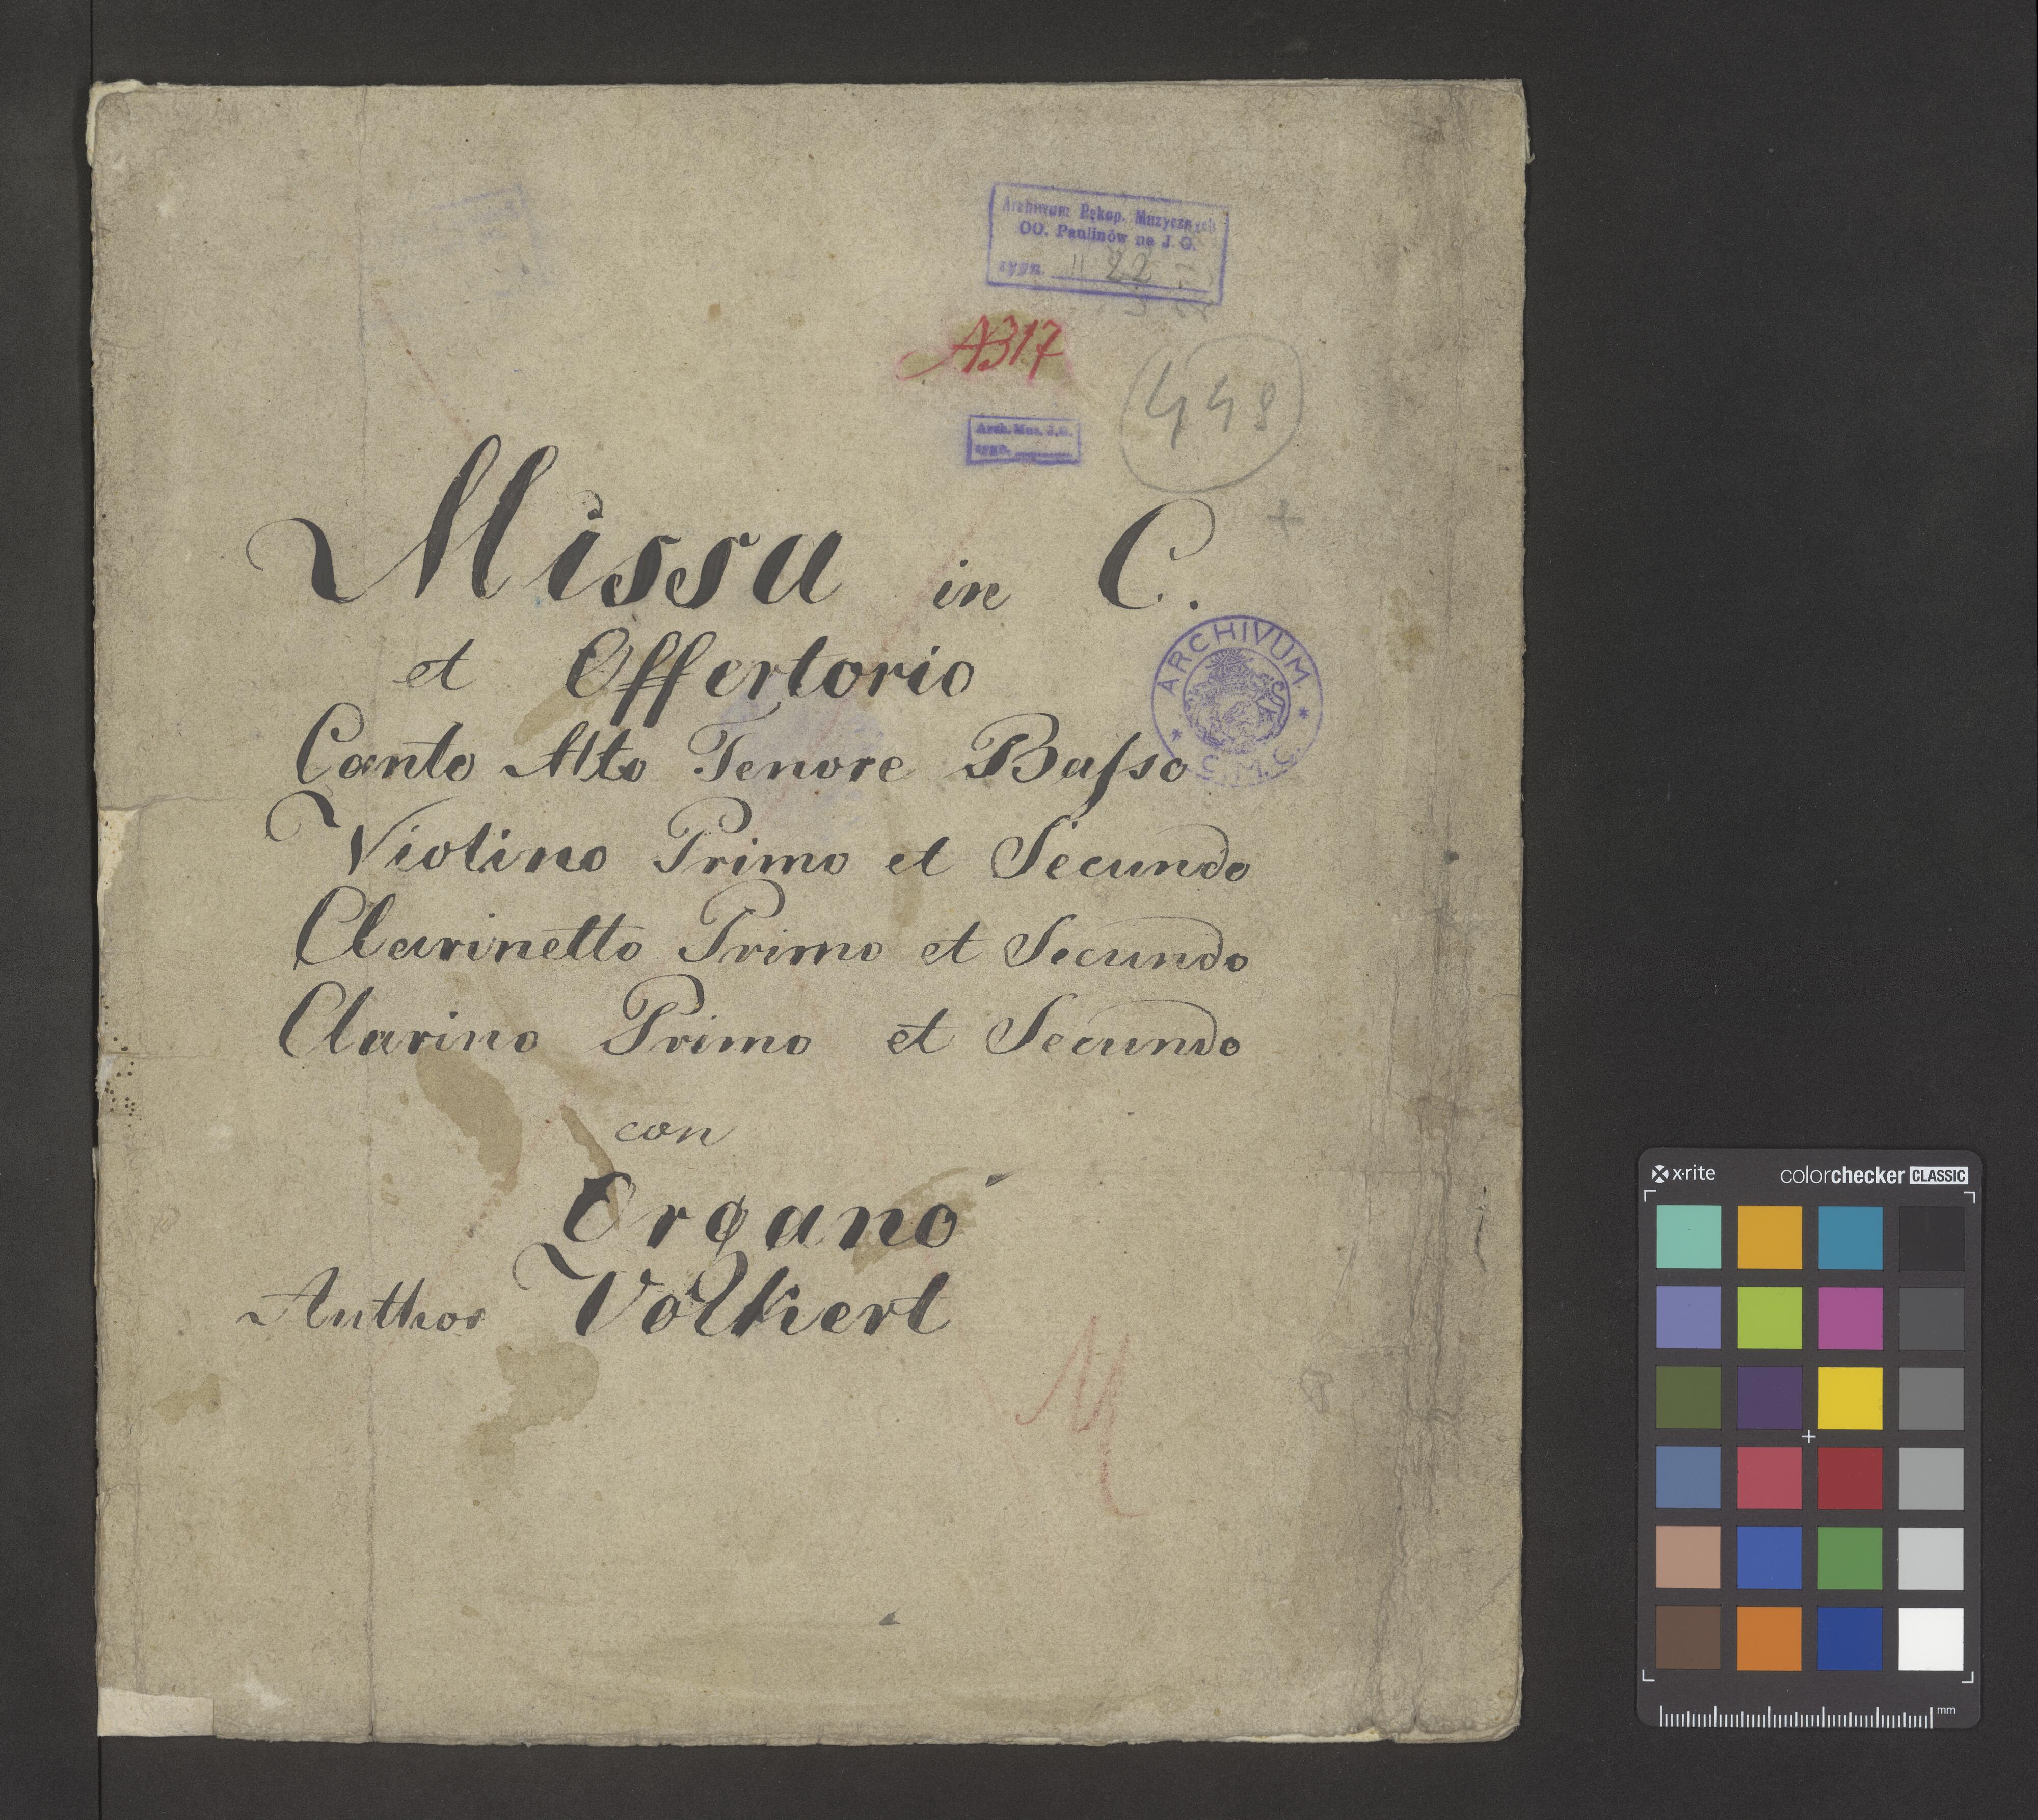 Archiwum Rękop. Muzycznych
OO. Paulinów na J. G.
sygn. II 22
A317
448
Arch. Mus. J.G.
sygn.
Missa in C.
et Offertorio
ARCHIVUM
Canto Alto Tenore Baſso
Violino Primo et Secundo
Clarinetto Primo et Secundo
Clarino Primo et Secundo
con
Organo
Author Volkert
M
x-rite colorchecker CLASSIC
mm